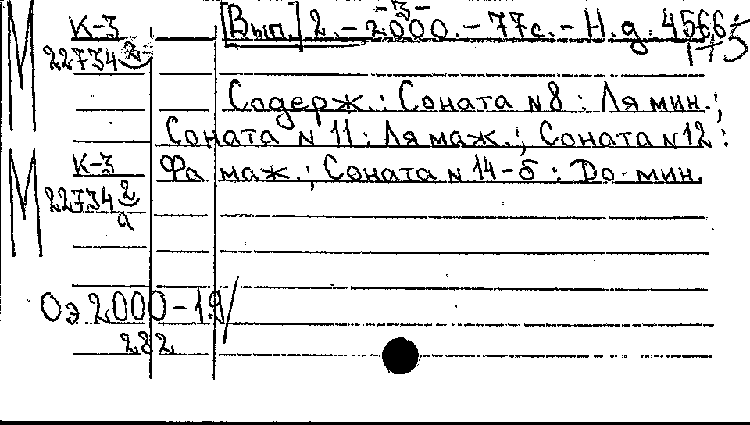 -3-
К-3 [Вып.] 2. - 2000. - 77с. - Н. д. 4566
22734 2 175
Содерж.: Соната N8: Ля мин.;
Соната N 11: Ля маж.; Соната N12:
К-3 Фа маж.; Соната N 14-б: До мин.
22734 2
а
Оэ 2000-19
282
М
М